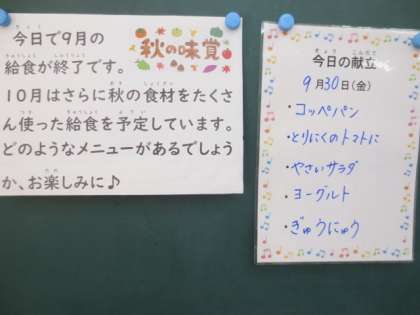 今日で9月の
秋の味覚
給食が終了です。
10月はさらに秋の食材をたくさ
ん使った給食を予定しています。
どのようなメニューがあるでしょう
か、お楽しみに♪
今日の献立
9月30日(金)
・コッペパン
・とりにくのトマトに
・やさいサラダ
・ヨーグルト
・ぎゅうにゅう